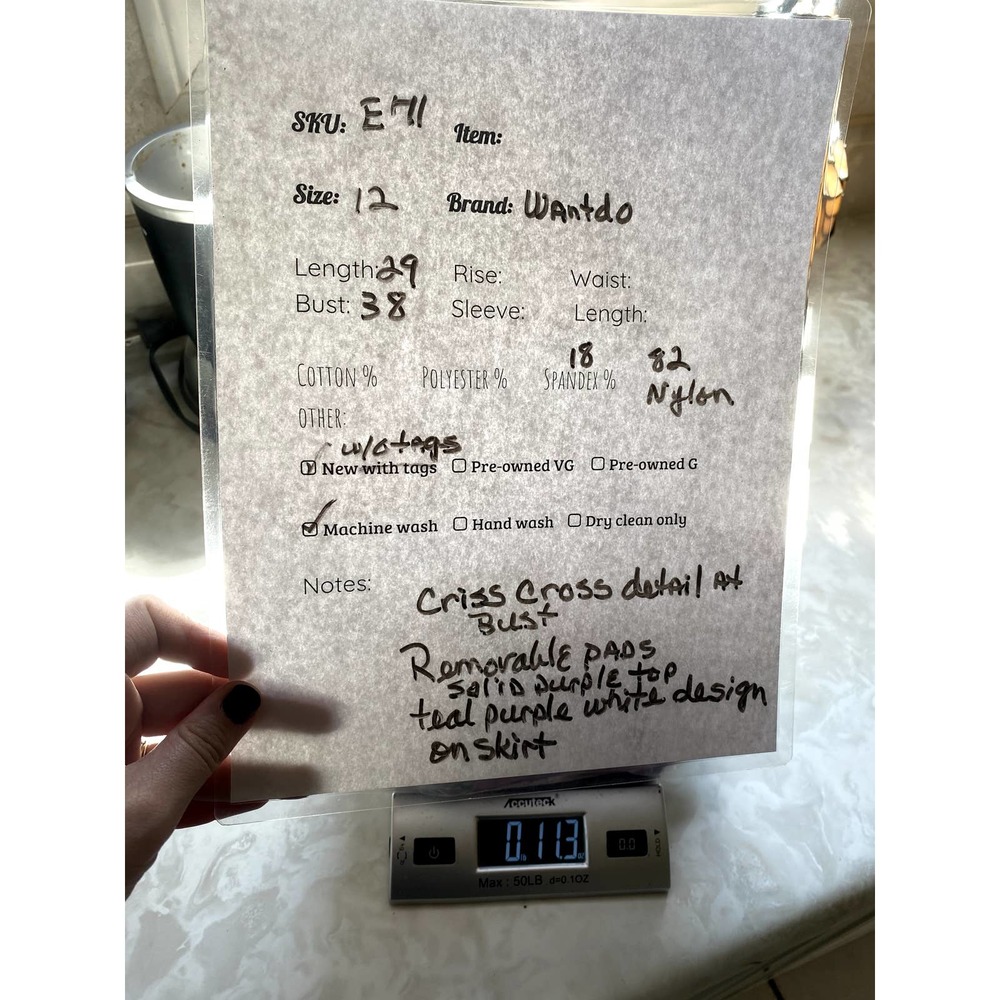 SKU: E711 Item:
Size: 12 Brand: Wantdo
Length: 29 Rise: Waist:
Bust: 38 Sleeve: Length:
18 82
Cotton % Polyester % Spandex % Nylon
Other:
w/o tags
New with tags Pre-owned VG Pre-owned G
Machine wash Hand wash Dry clean only
Notes: Criss Cross detail At
Bust
Removable PADS
Solid purple top
teal purple white design
on skirt
Accuteck
0 lb 11.3 oz 0.0
HOLD
Max : 50LB d=0.1OZ